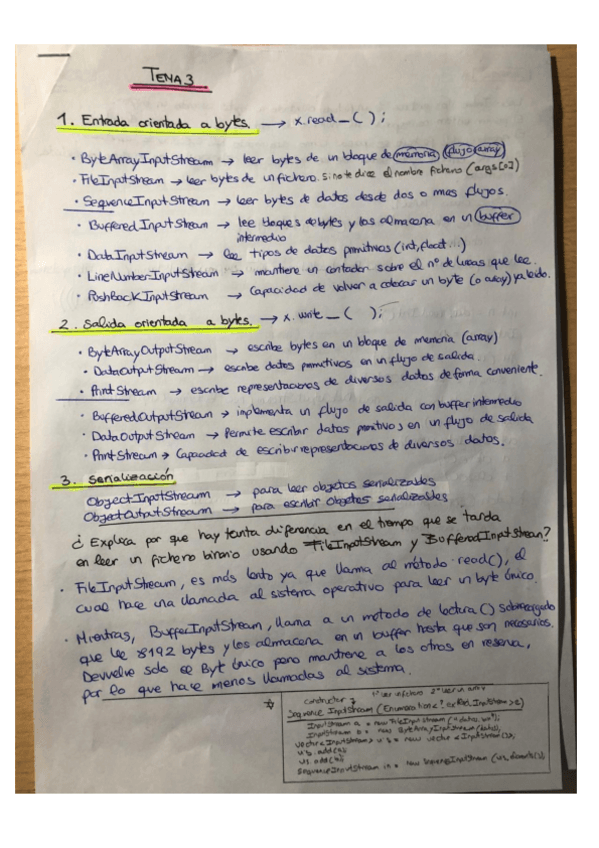 TEMA 3
1. Entrada orientada a bytes. → x.read_( );
• ByteArrayInputStream → leer bytes de un bloque de memoria (flujo array)
• FileInputStream → leer bytes de un fichero. Si no te dice el nombre fichero (args[0])
• SequenceInputStream → leer bytes de datos desde dos o mas flujos.
• BufferedInputStream → lee bloques de bytes y los almacena en un buffer
intermedio
• DataInputStream → lee tipos de datos primitivos (int, float...)
• LineNumberInputStream → mantiene un contador sobre el nº de lineas que lee.
• PushBackInputStream → Capacidad de volver a colocar un byte (o array) ya leido.
2. Salida orientada a bytes. → x.write_( );
• ByteArrayOutputStream → escribe bytes en un bloque de memoria (array)
• DataOutputStream → escribe datos primitivos en un flujo de salida.
• PrintStream → escribe representaciones de diversos datos de forma conveniente.
• BufferedOutputStream → implementa un flujo de salida con buffer intermedio
• DataOutputStream → Permite escribir datos primitivos en un flujo de salida
• PrintStream → Capacidad de escribir representaciones de diversos datos.
3. Serialización
ObjectInputStream → para leer objetos serializables
ObjectOutputStream → para escribir objetos serializables
¿Explica por que hay tanta diferencia en el tiempo que se tarda
en leer un fichero binario usando FileInputStream y BufferedInputStream?
• FileInputStream, es más lento ya que llama al método read(), el
cual hace una llamada al sistema operativo para leer un byte único.
• Mientras, BufferInputStream, llama a un metodo de lectura() sobrecargado
que lee 8192 bytes y los almacena en un buffer hasta que son necesarios.
Devuelve solo el Byt único pero mantiene a los otros en reserva,
por lo que hace menos llamadas al sistema.
constructor 1º leer un fichero 2º leer un array
Sequence InputStream (Enumeration<? extends InputStream> e)
InputStream a = new FileInputStream ("datos.
InputStream b = new ByteArrayInputStream (datos);
Vector<InputStream> = new Vector<InputStream>();
.add(a);
.add(b);
SequenceInputStream = new SequenceInputStream (